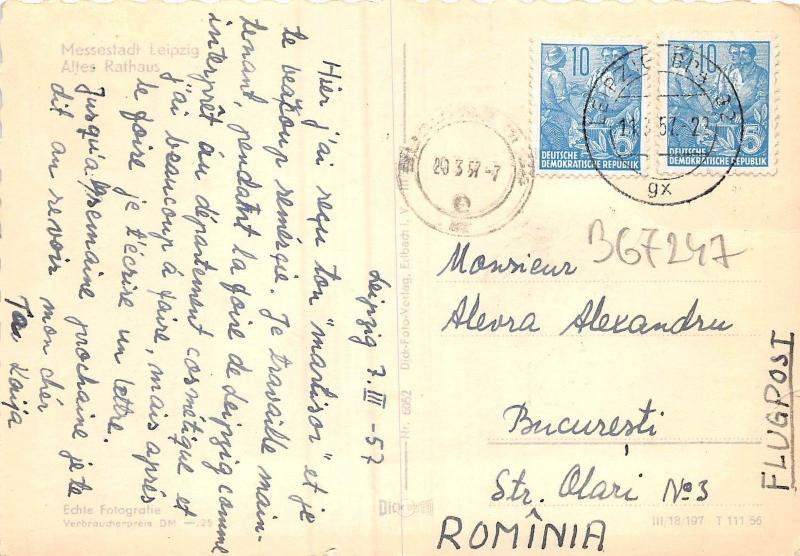 Messestadt Leipzig
Altes Rathaus
Leipzig 7.III-57
Hier j'ai reçu ton "martisor" et je
te beaucoup remercie. Je travaille main-
tenant, pendant la foire de Leipzig comme
interprèt au département cosmétique et
j'ai beaucoup à faire, mais après
le foire je t'écrise un lettre.
Jusqu'a semaine prochaine je te
dit au revoir mon chér
Ta Kaija
Echte Fotografie
Verbraucherpreis DM —.25
Nr. 6052 Dick-Foto-Verlag, Erlbach i. V.
Dick
10 10
5 5
DEUTSCHE
DEMOKRATISCHE REPUBLIK
DEUTSCHE
DEMOKRATISCHE REPUBLIK
LEIPZIG
3.57
gx
20 3 57 -7
367247
Monsieur
Alevra Alexandru
București
Str. Olari No 3
ROMÎNIA
FLUGPOST
III/18/197 T 111 56